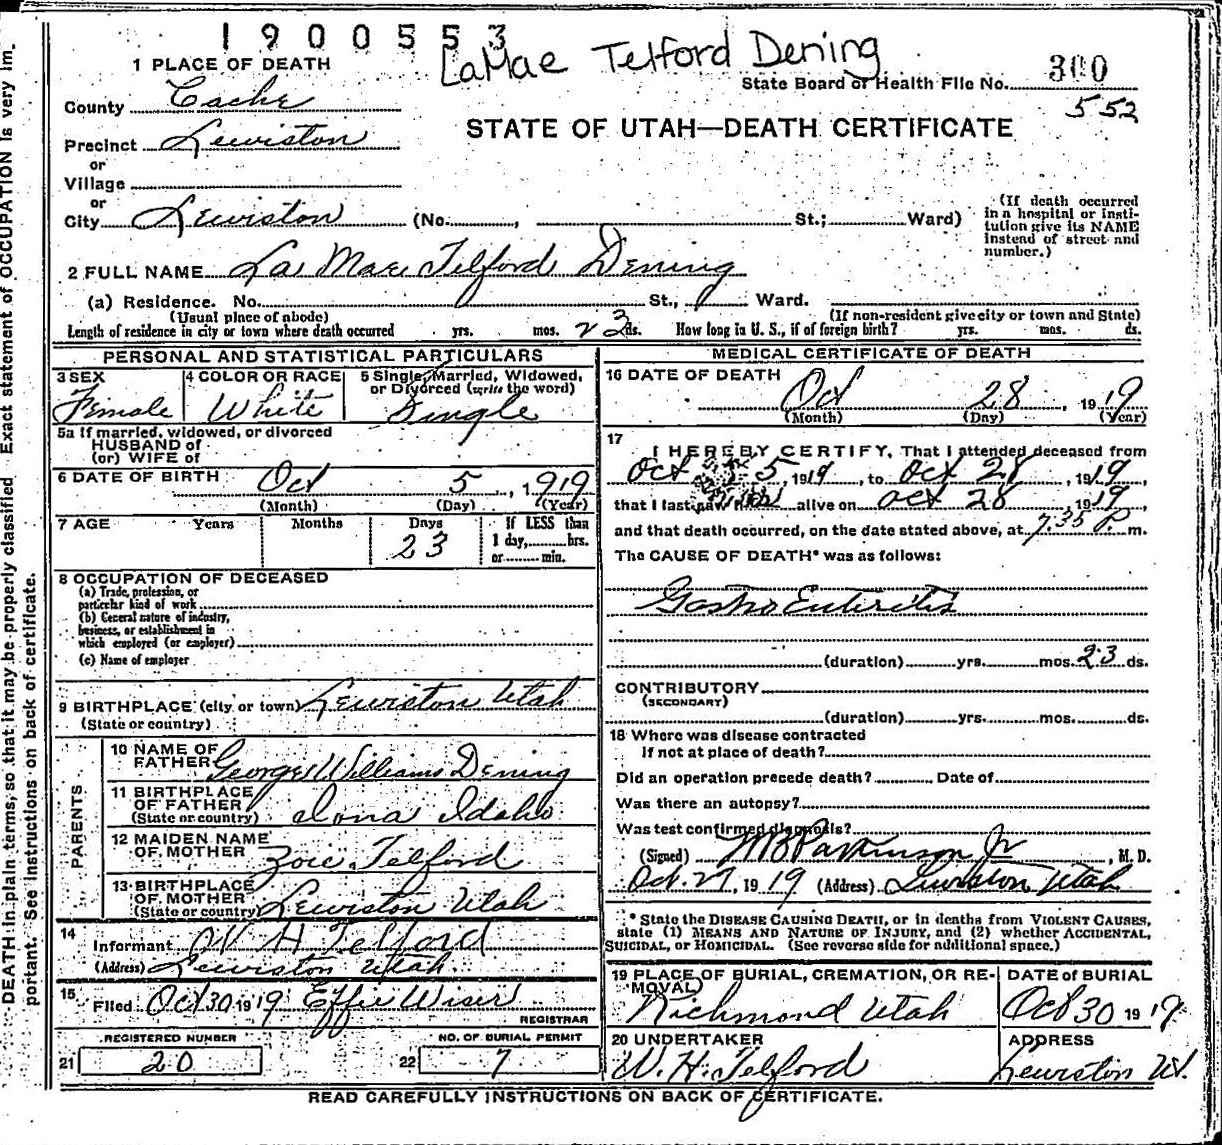 1900553
LaMae Telford Dening
1 PLACE OF DEATH
State Board of Health File No. 300
552
County Cache
STATE OF UTAH—DEATH CERTIFICATE
Precinct Lewiston
or
Village
or
City Lewiston (No. , St.; Ward)
(If death occurred in a hospital or institution give its NAME instead of street and number.)
2 FULL NAME La Mae Telford Dening
(a) Residence. No. St., Ward.
(Usual place of abode) (If non-resident give city or town and State)
Length of residence in city or town where death occurred yrs. mos. 23 ds. How long in U. S., if of foreign birth? yrs. mos. ds.
PERSONAL AND STATISTICAL PARTICULARS
3 SEX 4 COLOR OR RACE 5 Single, Married, Widowed, or Divorced (write the word)
Female White Single
5a If married, widowed, or divorced
HUSBAND of
(or) WIFE of
6 DATE OF BIRTH Oct 5, 1919
(Month) (Day) (Year)
7 AGE Years Months Days If LESS than
23 1 day, hrs.
or min.
8 OCCUPATION OF DECEASED
(a) Trade, profession, or
particular kind of work
(b) General nature of industry,
business, or establishment in
which employed (or employer)
(c) Name of employer
9 BIRTHPLACE (city or town) Lewiston Utah
(State or country)
PARENTS
10 NAME OF FATHER George Williams Dening
11 BIRTHPLACE OF FATHER (State or country) Iona Idaho
12 MAIDEN NAME OF MOTHER Zoie Telford
13 BIRTHPLACE OF MOTHER (State or country) Lewiston Utah
14
Informant W H Telford
(Address) Lewiston Utah.
15 Filed Oct 30 1919 Effie Wiser
REGISTRAR
REGISTERED NUMBER NO. OF BURIAL PERMIT
21 20 22 7
MEDICAL CERTIFICATE OF DEATH
16 DATE OF DEATH
Oct 28, 1919
(Month) (Day) (Year)
17
I HEREBY CERTIFY, That I attended deceased from
Oct 5 1919, to Oct 28, 1919,
that I last saw alive on Oct 28 1919,
and that death occurred, on the date stated above, at 7.35 P. m.
The CAUSE OF DEATH* was as follows:
Gastro Enteritis
(duration) yrs. mos. 23 ds.
CONTRIBUTORY
(SECONDARY)
(duration) yrs. mos. ds.
18 Where was disease contracted
If not at place of death?
Did an operation precede death? Date of
Was there an autopsy?
Was test confirmed diagnosis?
(Signed) W B Parkinson Jr, M. D.
Oct. 29, 1919 (Address) Lewiston Utah
* State the DISEASE CAUSING DEATH, or in deaths from VIOLENT CAUSES,
state (1) MEANS AND NATURE OF INJURY, and (2) whether ACCIDENTAL,
SUICIDAL, or HOMICIDAL. (See reverse side for additional space.)
19 PLACE OF BURIAL, CREMATION, OR RE- DATE of BURIAL
MOVAL
Richmond Utah Oct 30 1919
20 UNDERTAKER ADDRESS
W. H. Telford Lewiston Ut.
READ CAREFULLY INSTRUCTIONS ON BACK OF CERTIFICATE.
Exact statement of OCCUPATION is very im-
DEATH in plain terms, so that it may be properly classified
portant. See instructions on back of certificate.